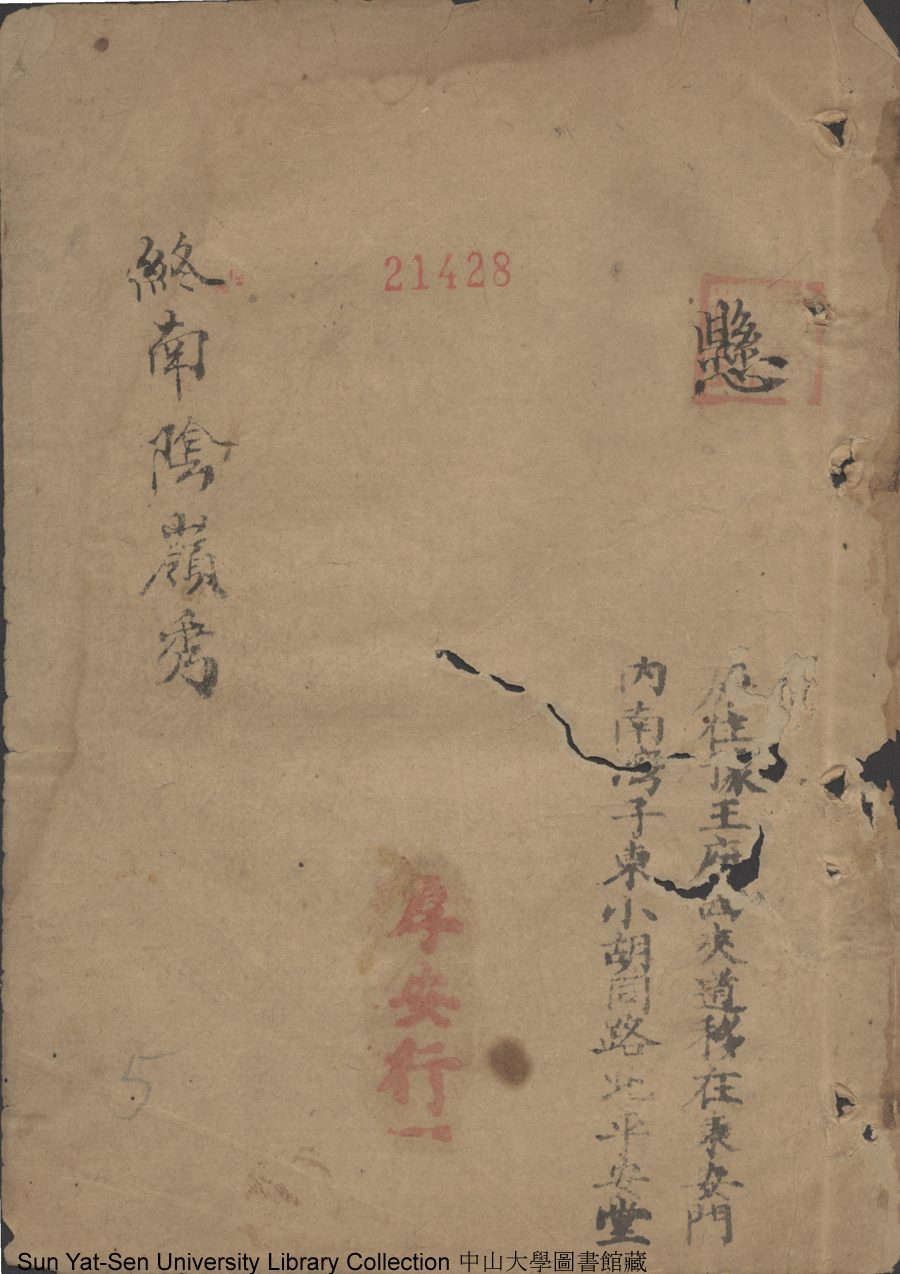 懸
原住豫王府西夾道移在東安門
内南灣子東小胡同路北平安堂
21428
厚安行一
終南陰嶺秀
5
Sun Yat-Sen University Library Collection 中山大學圖書館藏